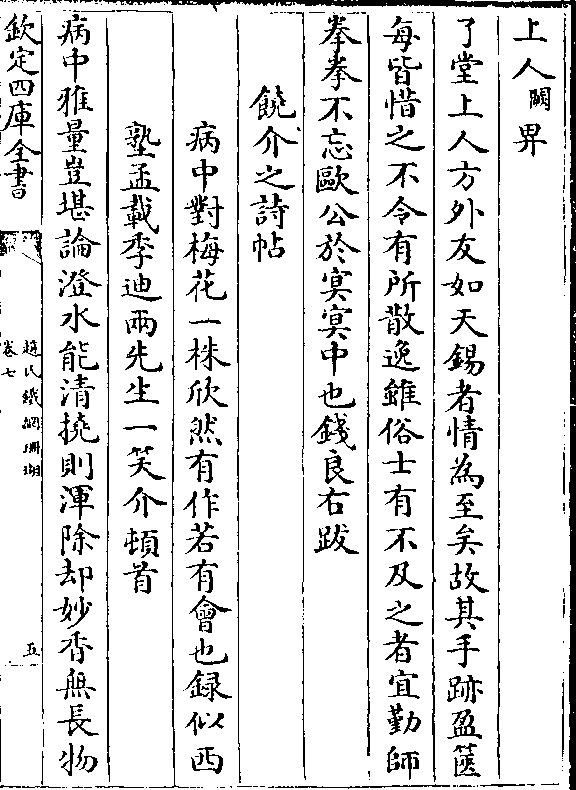 上人闕昇
了堂上人方外友如天錫者情為至矣故其手跡盈篋
每皆惜之不令有所散逸雖俗士有不及之者宜勤師
拳拳不忘歐公於冥冥中也錢良右跋
饒介之詩帖
病中對梅花一株欣然有作若有會也録似西
塾孟載季迪兩先生一笑介頓首
病中雅量豈堪論澄水能清撓則渾除却妙香無長物
欽定四庫全書
趙氏鐵網珊瑚
卷七
五